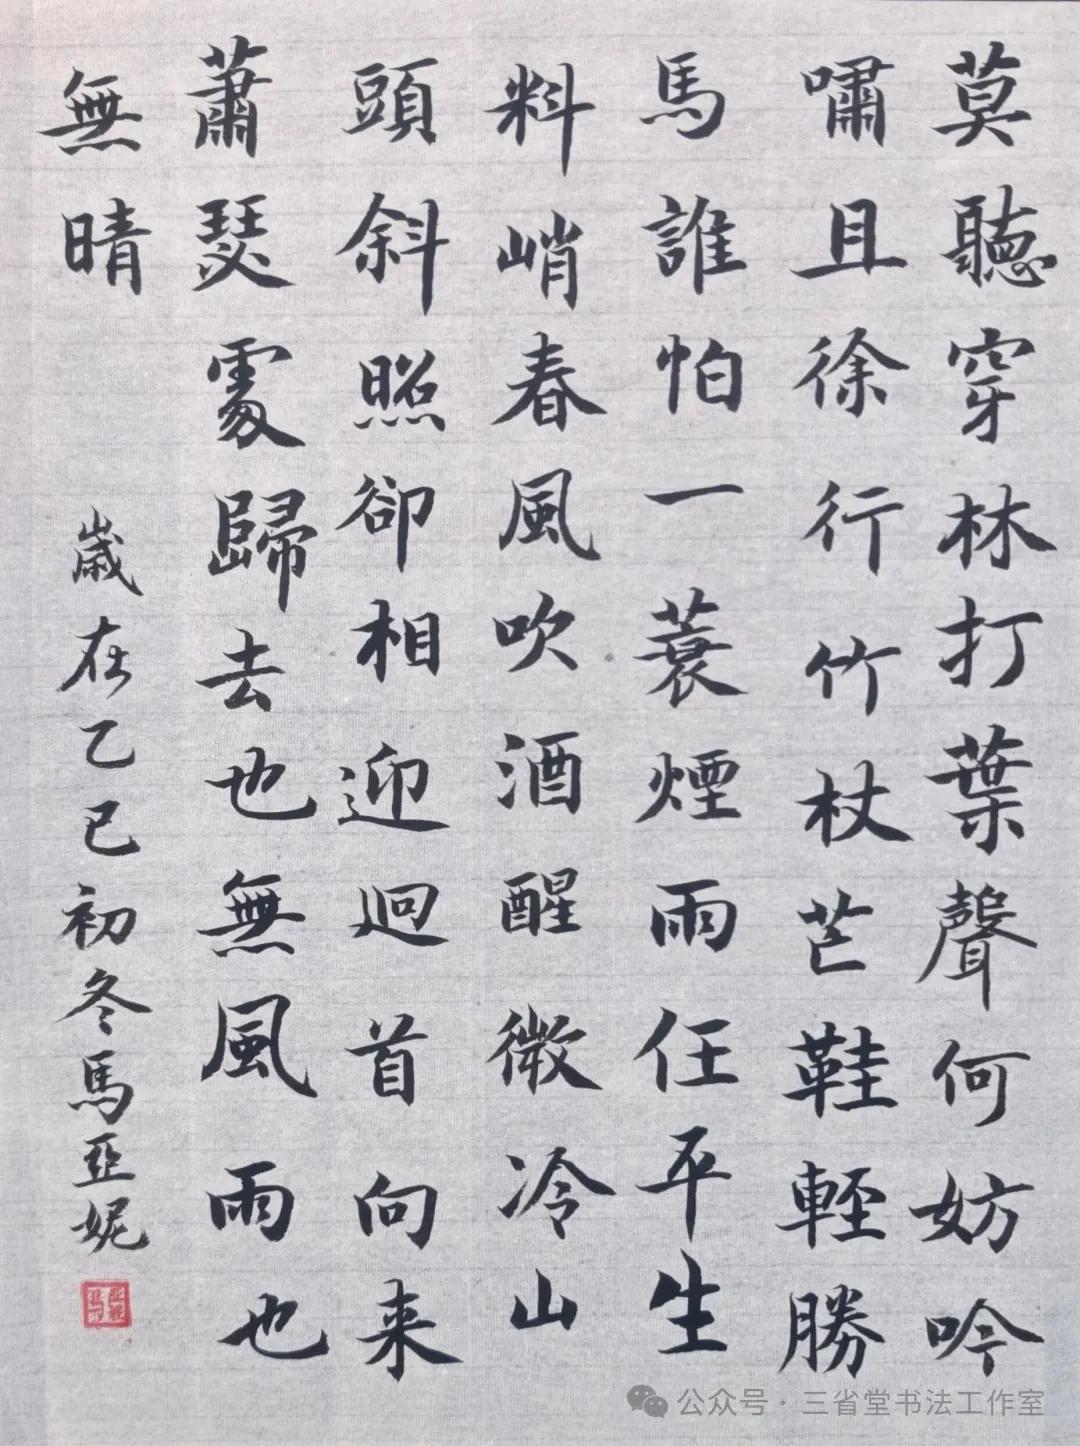 莫聽穿林打葉聲何妨吟
嘯且徐行竹杖芒鞋輕勝
馬誰怕一蓑煙雨任平生
料峭春風吹酒醒微冷山
頭斜照卻相迎迴首向来
蕭瑟處歸去也無風雨也
無晴
歲在乙巳初冬馬亞妮
公众号·三省堂书法工作室